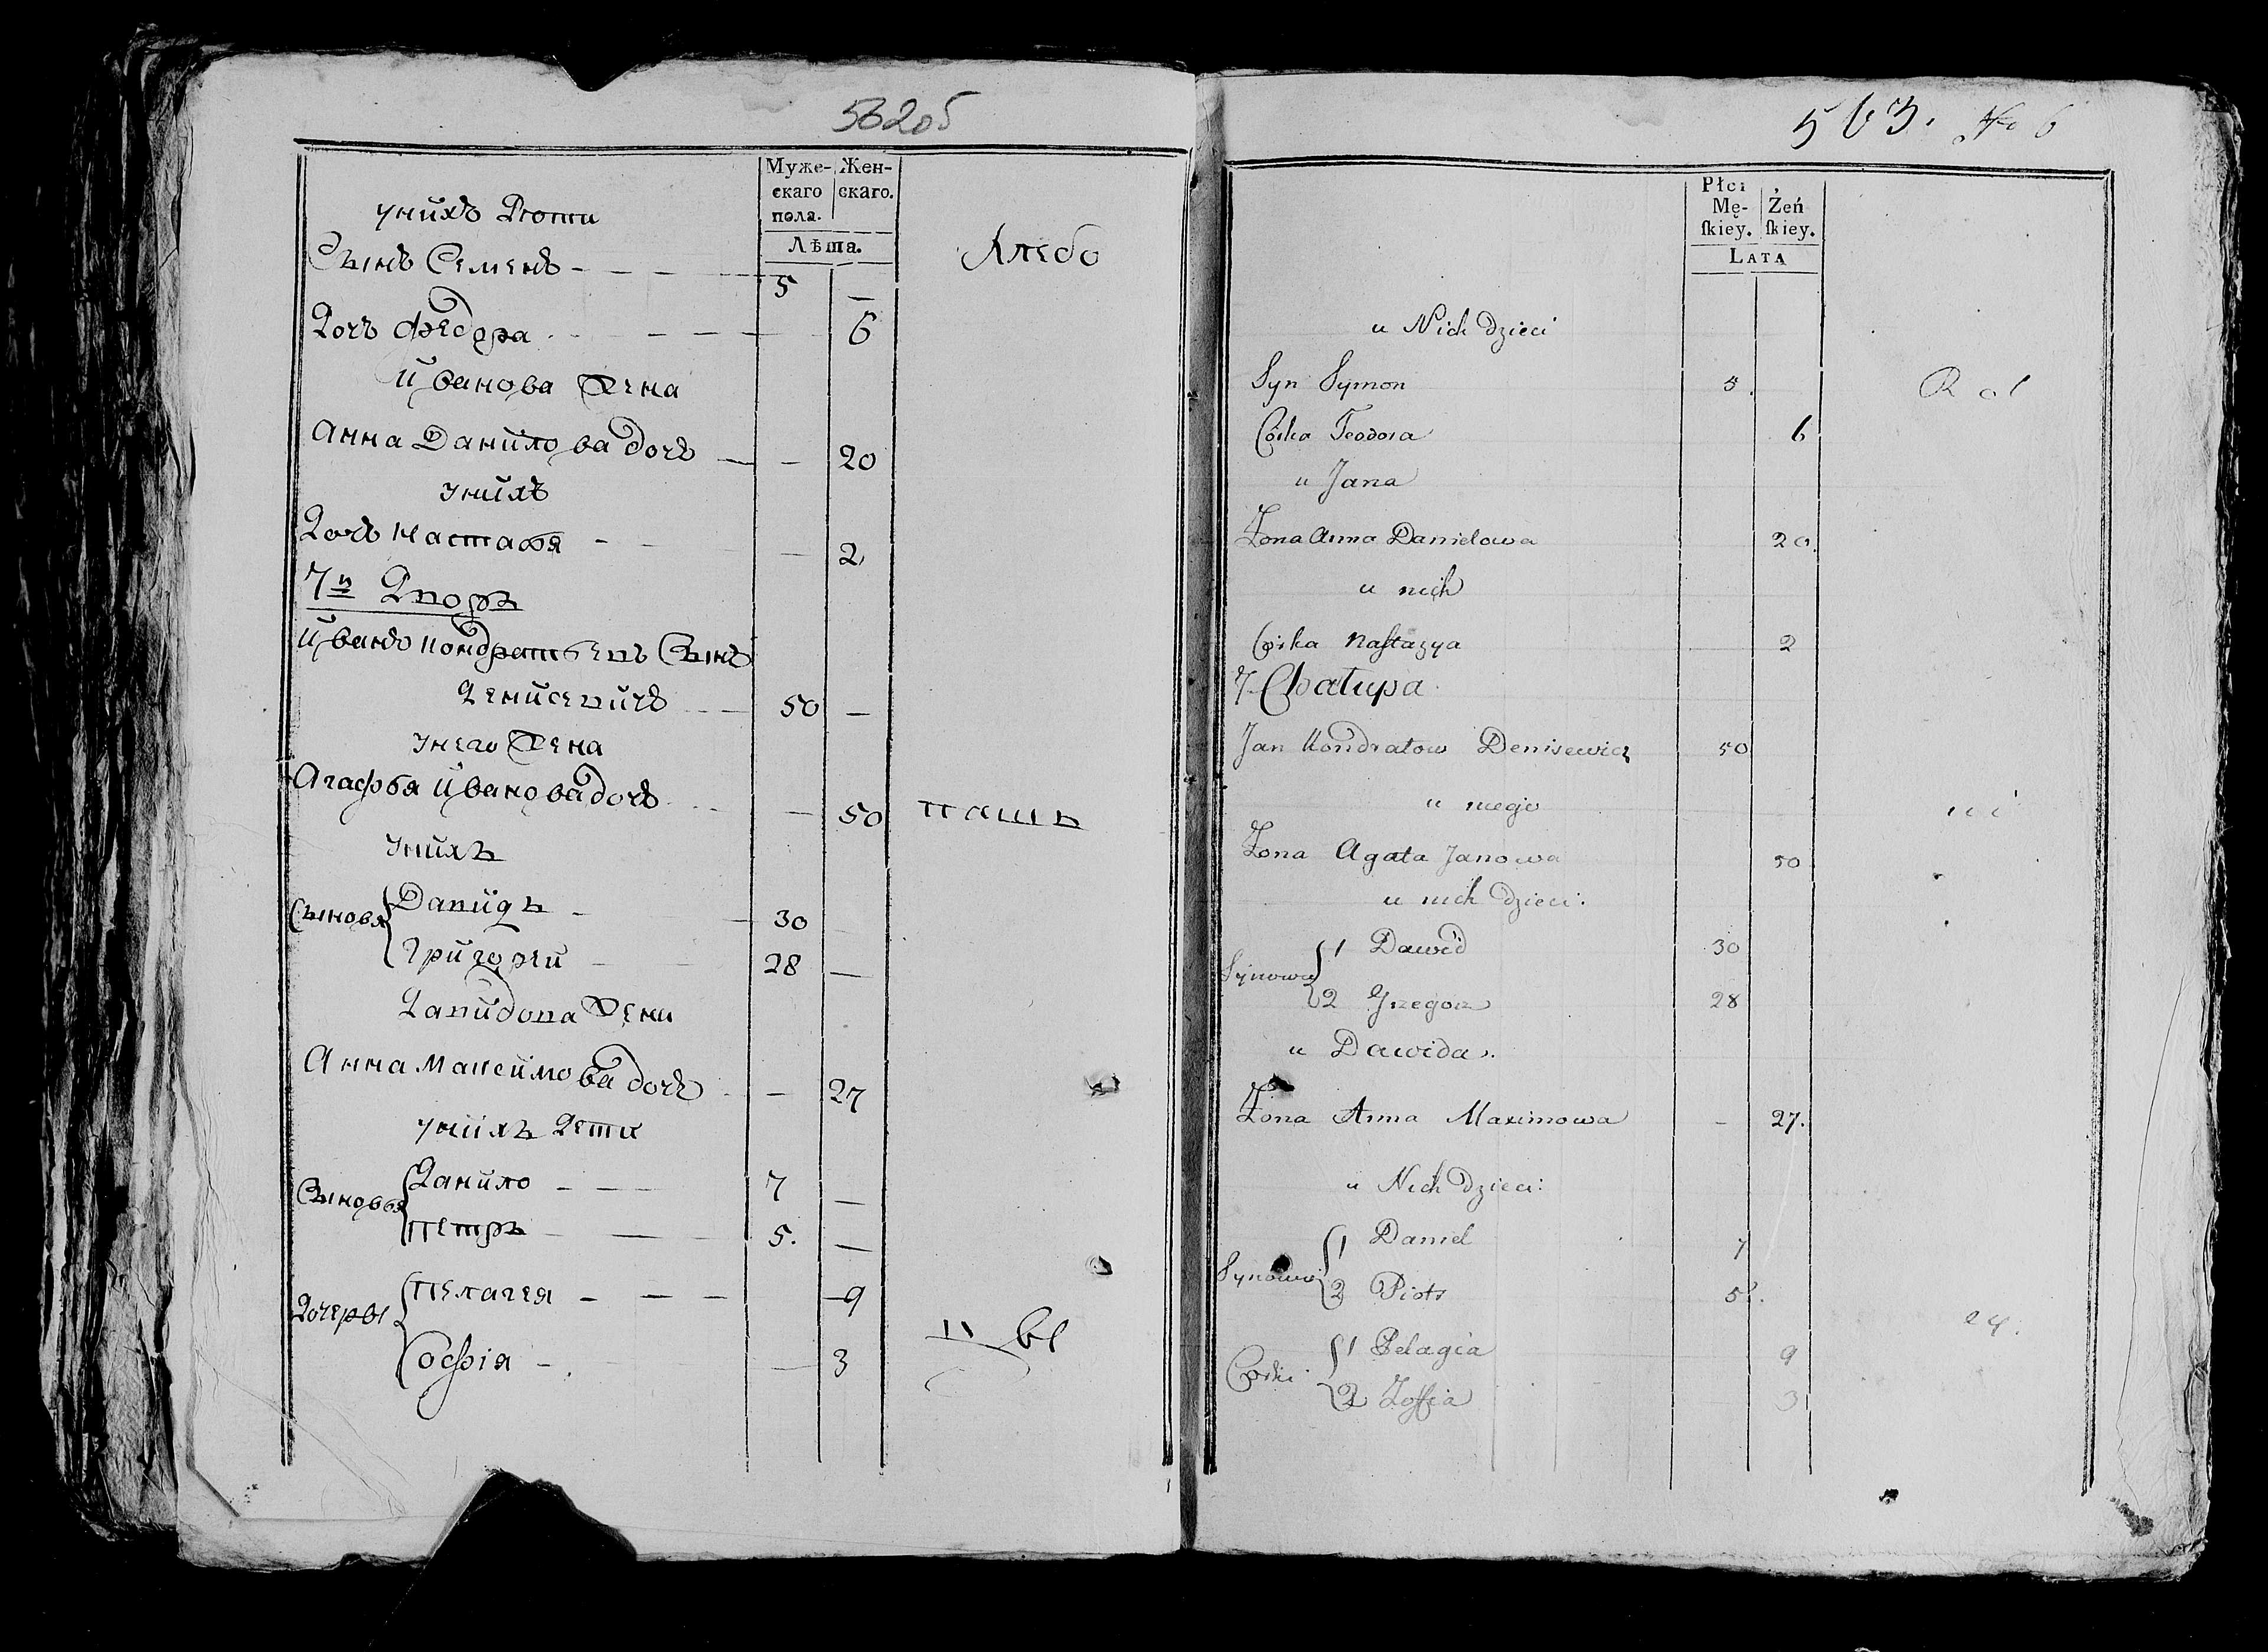 562об
Муже- Жен-
скаго скаго.
пола.
Лѣта.
унихъ Дети
Сынъ Семенъ 5 —
Хлебо
Дочь Федора 6
Иванова жена
Анна Данилова дочь — 20
унихъ
Дочь Настасья — 2
7й Дворъ
Иванъ Кондратьевъ Сынъ
Денисевичъ 50 —
Унего жена
Агафья Иванова дочь — 50
паш
Унихъ
Сыновья
Давидъ 30 —
Григорей 28 —
Давидова жена
Анна Максимова дочь — 27
унихъ Дети
Сыновья
Данило 7 —
Петръ 5. —
Дочеры
Пелагея 9
Софія — 3
цы
563. № 6
Płci
Mę- Żeń
ſkiey. ſkiey.
LATA
u Nich dzieci
Syn Symon 5.
Rol
Córka Teodora 6
u Jana
Żona Anna Danielowa 20.
u nich
Córka Nastazya 2
7. Chałupa
Jan Kondratow Denisewicz 50
u niego
ni
Żona Agata Janowa 50
u nich dzieci:
Synowie
1 Dawid 30
2 Grzegorz 28
u Dawida.
Żona Anna Maximowa – 27.
u Nich dzieci:
Synowie
1 Daniel 7
2 Piotr 5.
cy.
Córki
1 Pelagia 9
2 Zoffia 3